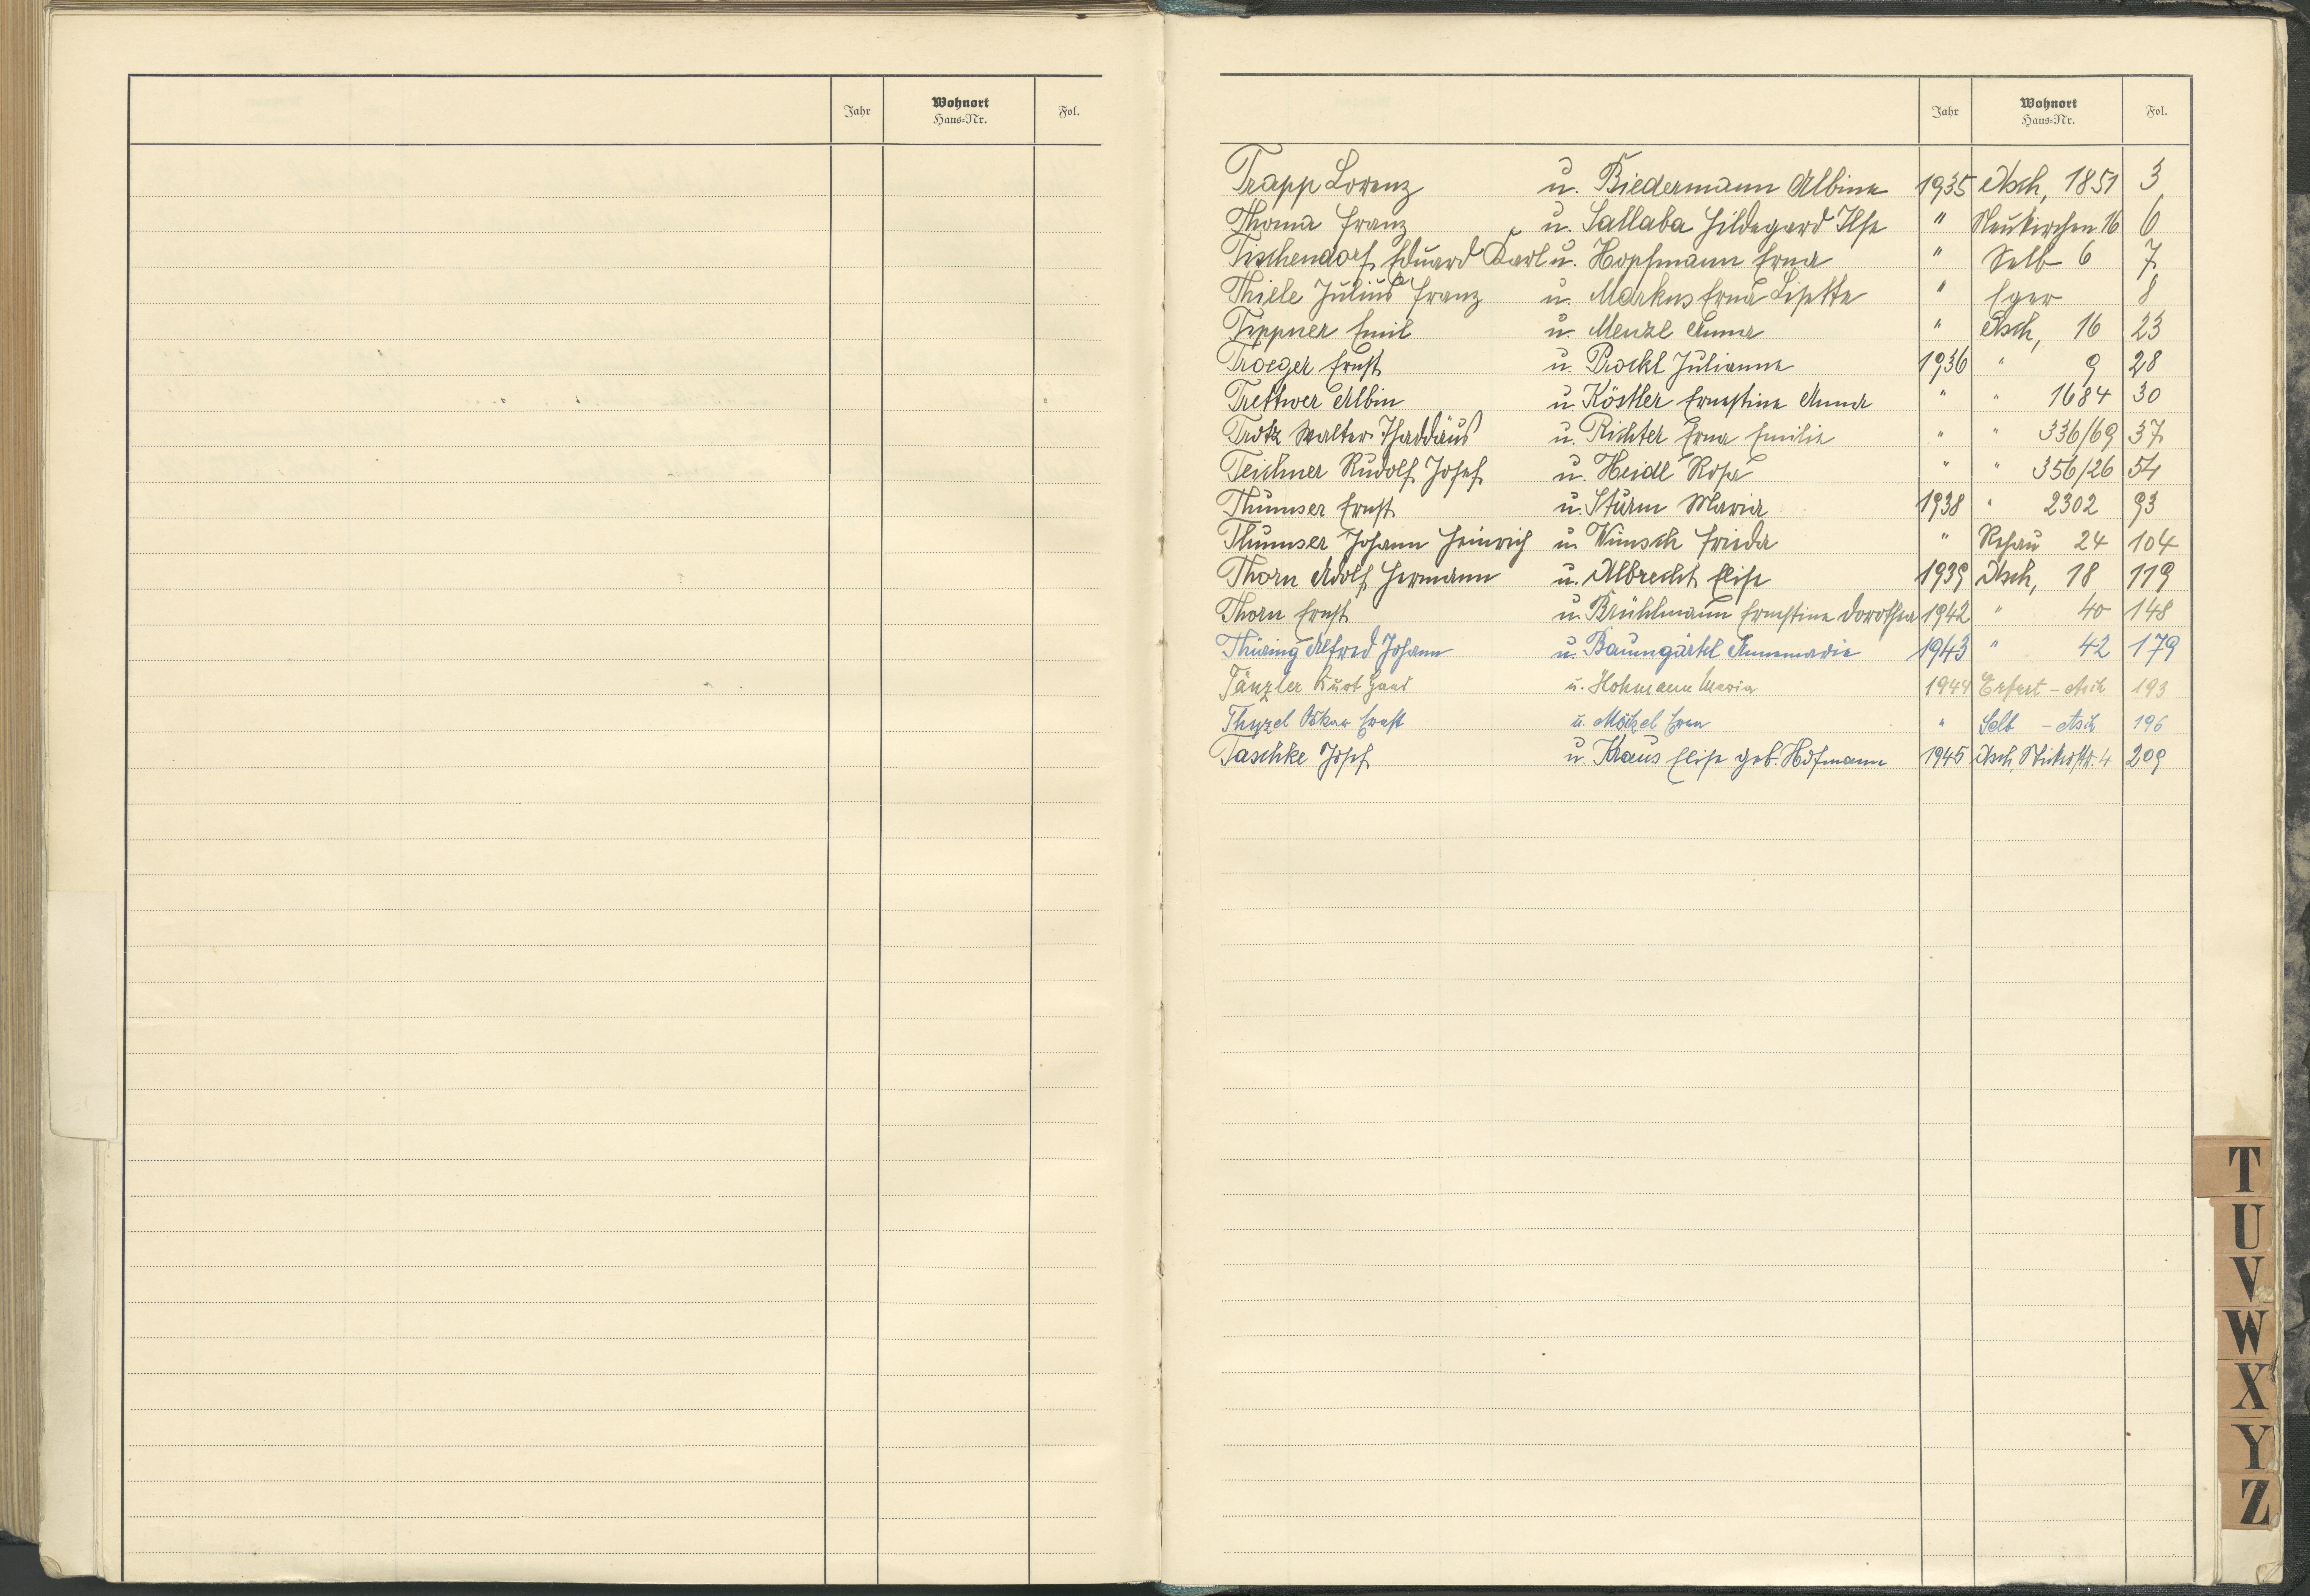 Jahr Wohnort Haus-Nr. Fol.
Jahr Wohnort Haus-Nr. Fol.
Trapp Lorenz u. Biedermann Albine 1935 Asch, 1851 3
Thoma Franz u. Sallaba Hildegard Ilse " Neukirchen 16 6
Tischendorf Eduard Karl u. Hopfmann Erna " Selb 6 7
Thiele Julius Franz u. Markus Erna Lisette " Eger 8
Tippner Emil u. Menzl Anna " Asch, 16 23
Troeger Ernst u. Prockl Julianne 1936 " 9 28
Trettwer Albin u. Köstler Ernestine Anna " " 1684 30
Trotz Walter Thaddäus u. Richter Erna Emilie " " 336/69 37
Teichner Rudolf Josef u. Heidl Rosa " " 356/26 54
Thumser Ernst u. Sturm Maria 1938 " 2302 93
Thumser Johann Heinrich u. Wunsch Frieda " Rehau 24 104
Thorn Adolf Hermann u. Albrecht Elise 1939 Asch, 18 119
Thorn Ernst u. Brühlmann Ernestine Dorothea 1942 " 40 148
Thüring Alfred Johann u. Baumgärtel Annemarie 1943 " 42 179
Tänzler Kurt u. Hohmann Maria 1944 Erfurt - Asch 193
Thyzel Oskar Ernst u. Möckel Erna " Selb - Asch 196
Taschke Josef u. Kraus Elise geb. Hofmann 1945 Asch, 4 209
T
U
V
W
X
Y
Z